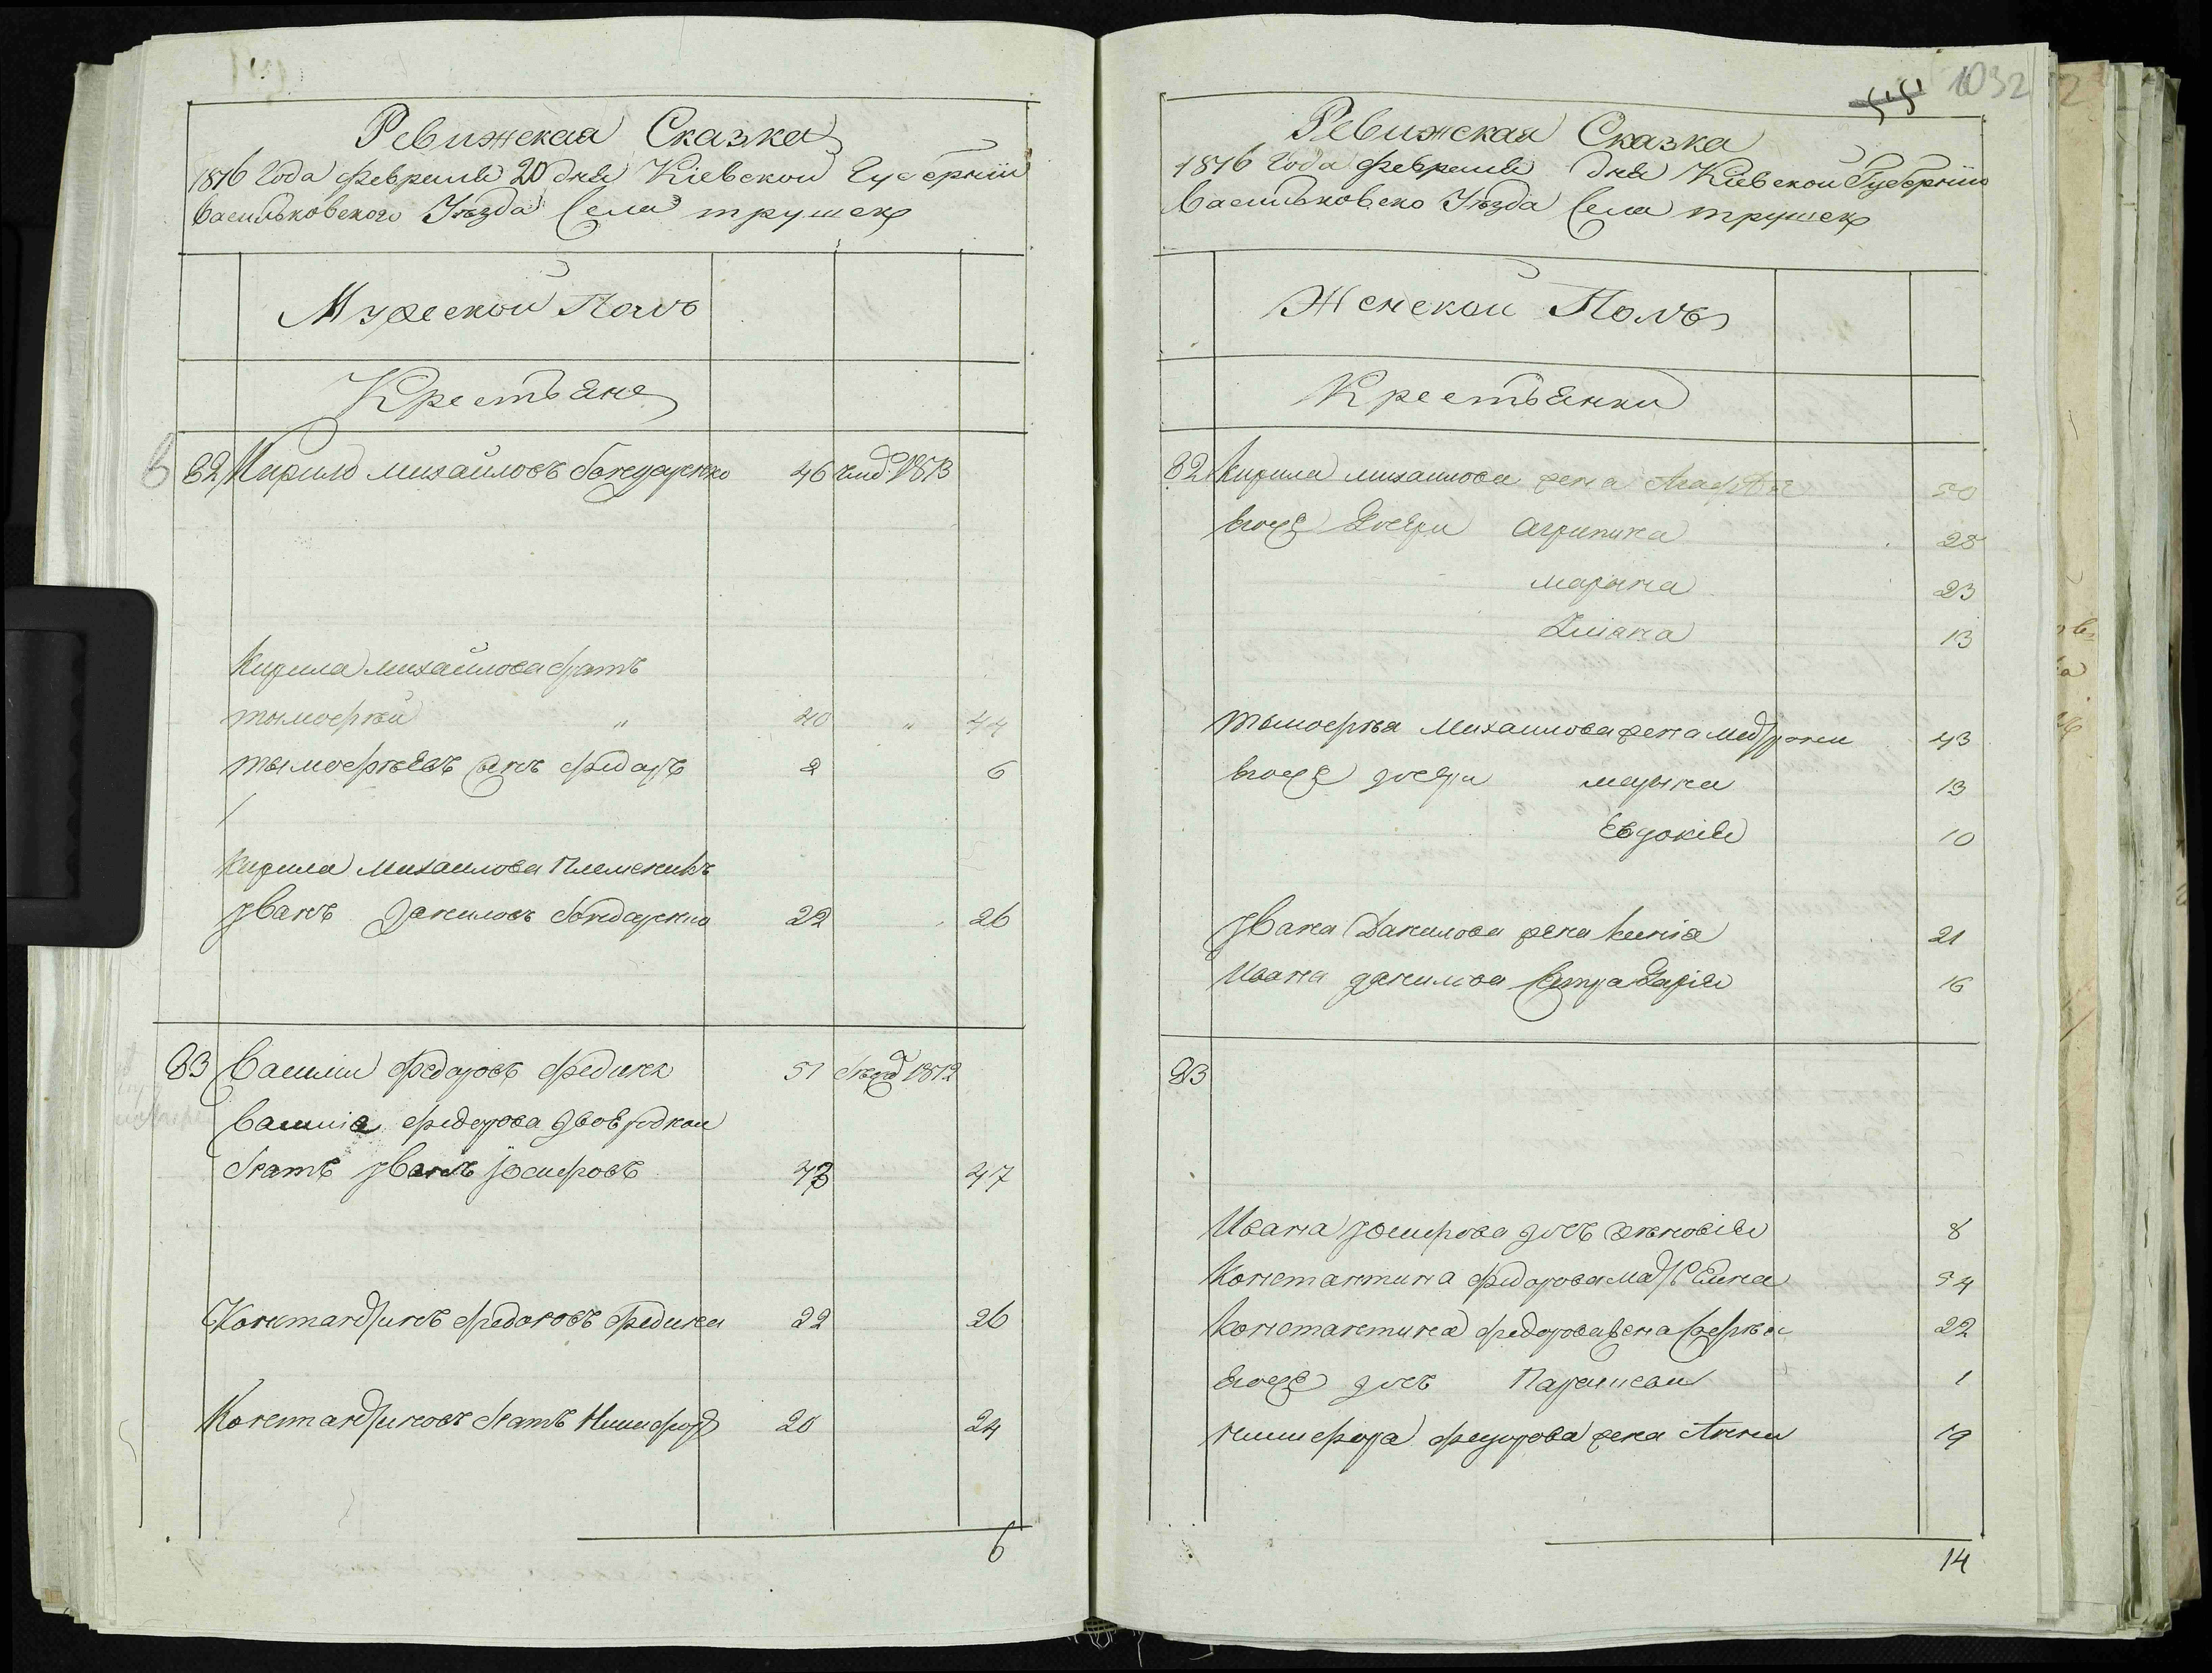 Ревижская Сказка
1816 Года февраля 20 дня Кіевской Губерніи
Васильковского Уѣзда Села трушек
Мужеской Полъ
Крестьяне
82 Кирило михайловъ бондаренко 46 умер 1813
Кирила михайлова братъ
тымофѣй " 40 " 44
тымофѣевъ сынъ федоръ 2 6
Кирила михайлова племеникъ
Иванъ Даниловъ бондаренко 22 26
83 Василии федоровъ федина 51 1812
Василія федорова двоеродной
братъ Иванъ Іосифовъ 43 47
Констандинъ федоровъ федина 22 26
Констандиновъ братъ Никифоръ 20 24
6
1032
Ревижская Сказка
1816 Года февраля дня Кіевской Губерніи
Васильковско Уѣзда Села трушек
Женской Полъ
Крестьянки
82 Кирила михаилова жена Агафія 50
его дочери агрипина 28
марина 23
Уліана 13
тымофѣя Михаилова жена 43
его дочери марина 13
Евдокія 10
Ивана Данилова жена Ксенія 21
Ивана данилова сестра Дарія 16
83
Ивана Іосифова дочь Зѣновія 8
Константина федорова мать Елена 54
Константина федорова жена Софѣя 22
его дочь Параскева 1
никифора федорова жена Анна 19
14